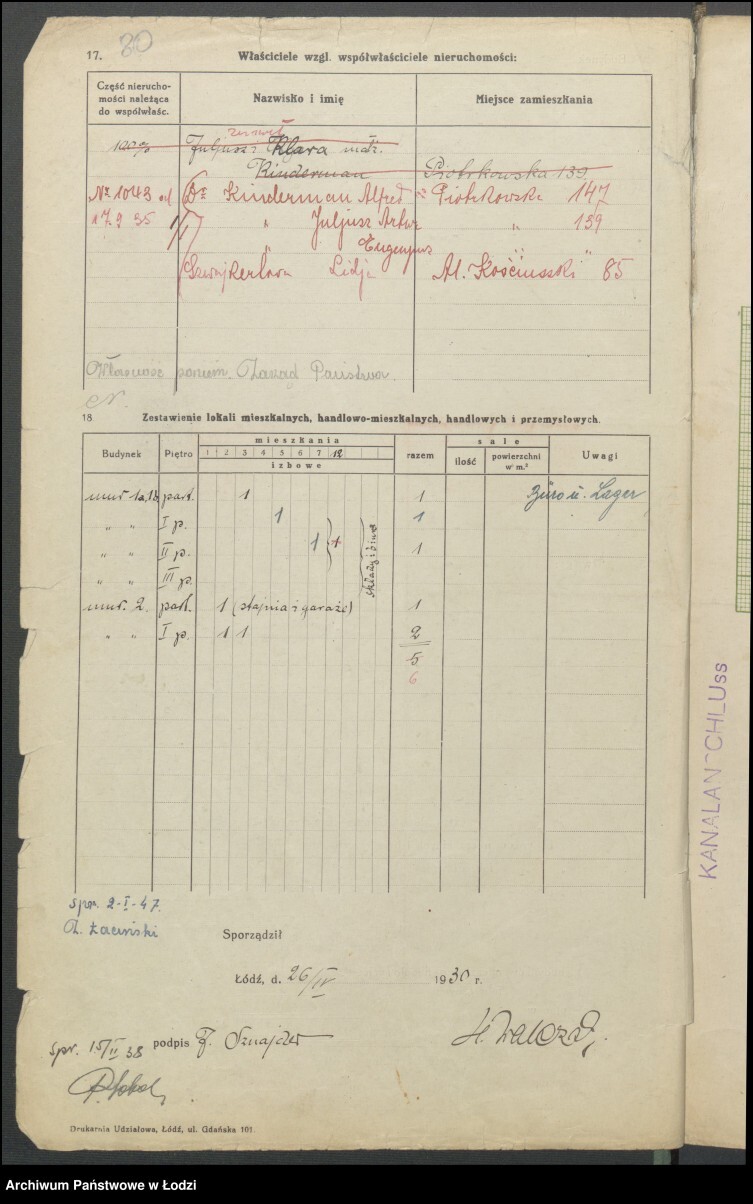 17. 80 Właściciele wzgl. współwłaściciele nieruchomości:
Część nierucho-
mości należąca
do współwłaśc.
Nazwisko i imię
Miejsce zamieszkania
100%
Juljusz i Klara małż.
Kinderman Piotrkowska 139
Nr 1043 od Dr Kinderman Alfred Piotrkowska 147
17.9 35 1/1 " Juljusz Artur " 139
" Eugenjusz "
Szwajkertowa Lidja Al. Kościuszki 85
Własność poniem. Zarząd Państwow.
18 Zestawienie lokali mieszkalnych, handlowo-mieszkalnych, handlowych i przemysłowych.
Budynek Piętro mieszkania razem sale Uwagi
1 2 3 4 5 6 7 12
izbowe
ilość powierzchni
w m.²
mur 1a,1b part. 1 1 Büro u. Lager
" " I p. 1 1
" " II p. 1 1 1
" " III p.
składy i biura
mur. 2. part. 1 (stajnia i garaże) 1
" " I p. 1 1 2
5
6
spr. 2-I-47.
Z. Łaciński
Sporządził
Łódź, d. 26/IV 1930 r.
spr. 15/II 38 podpis F. Sznajder
Drukarnia Udziałowa, Łódź, ul. Gdańska 101
KANALANSCHLUss
Archiwum Państwowe w Łodzi